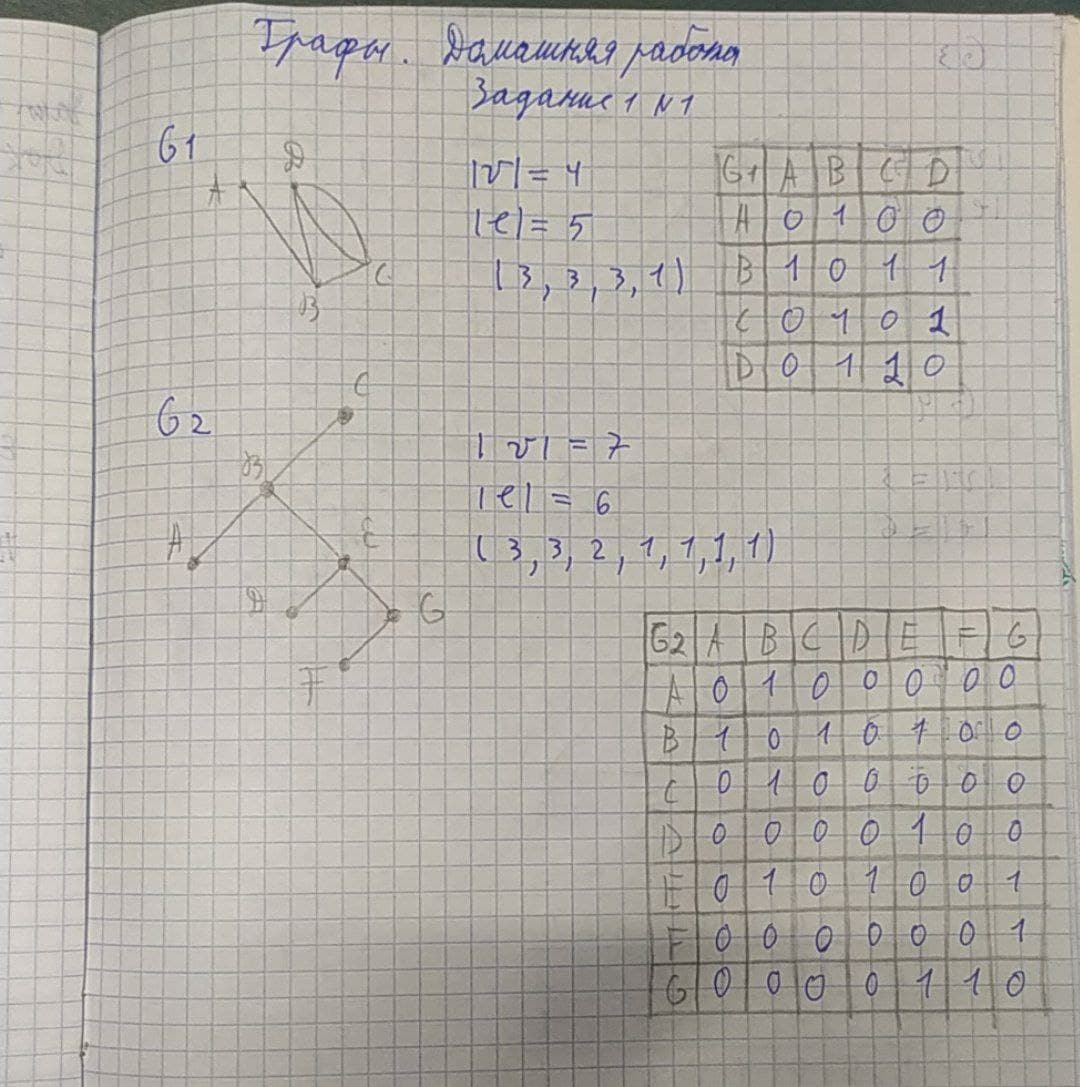 Графы. Домашняя работа
Задание 1 N1
G1
A D
B C
|v| = 4
|e| = 5
(3, 3, 3, 1)
G1 A B C D
A 0 1 0 0
B 1 0 1 1
C 0 1 0 1
D 0 1 1 0
G2
C
B
A E
D G
F
|v| = 7
|e| = 6
(3, 3, 2, 1, 1, 1, 1)
G2 A B C D E F G
A 0 1 0 0 0 0 0
B 1 0 1 0 1 0 0
C 0 1 0 0 0 0 0
D 0 0 0 0 1 0 0
E 0 1 0 1 0 0 1
F 0 0 0 0 0 0 1
G 0 0 0 0 1 1 0